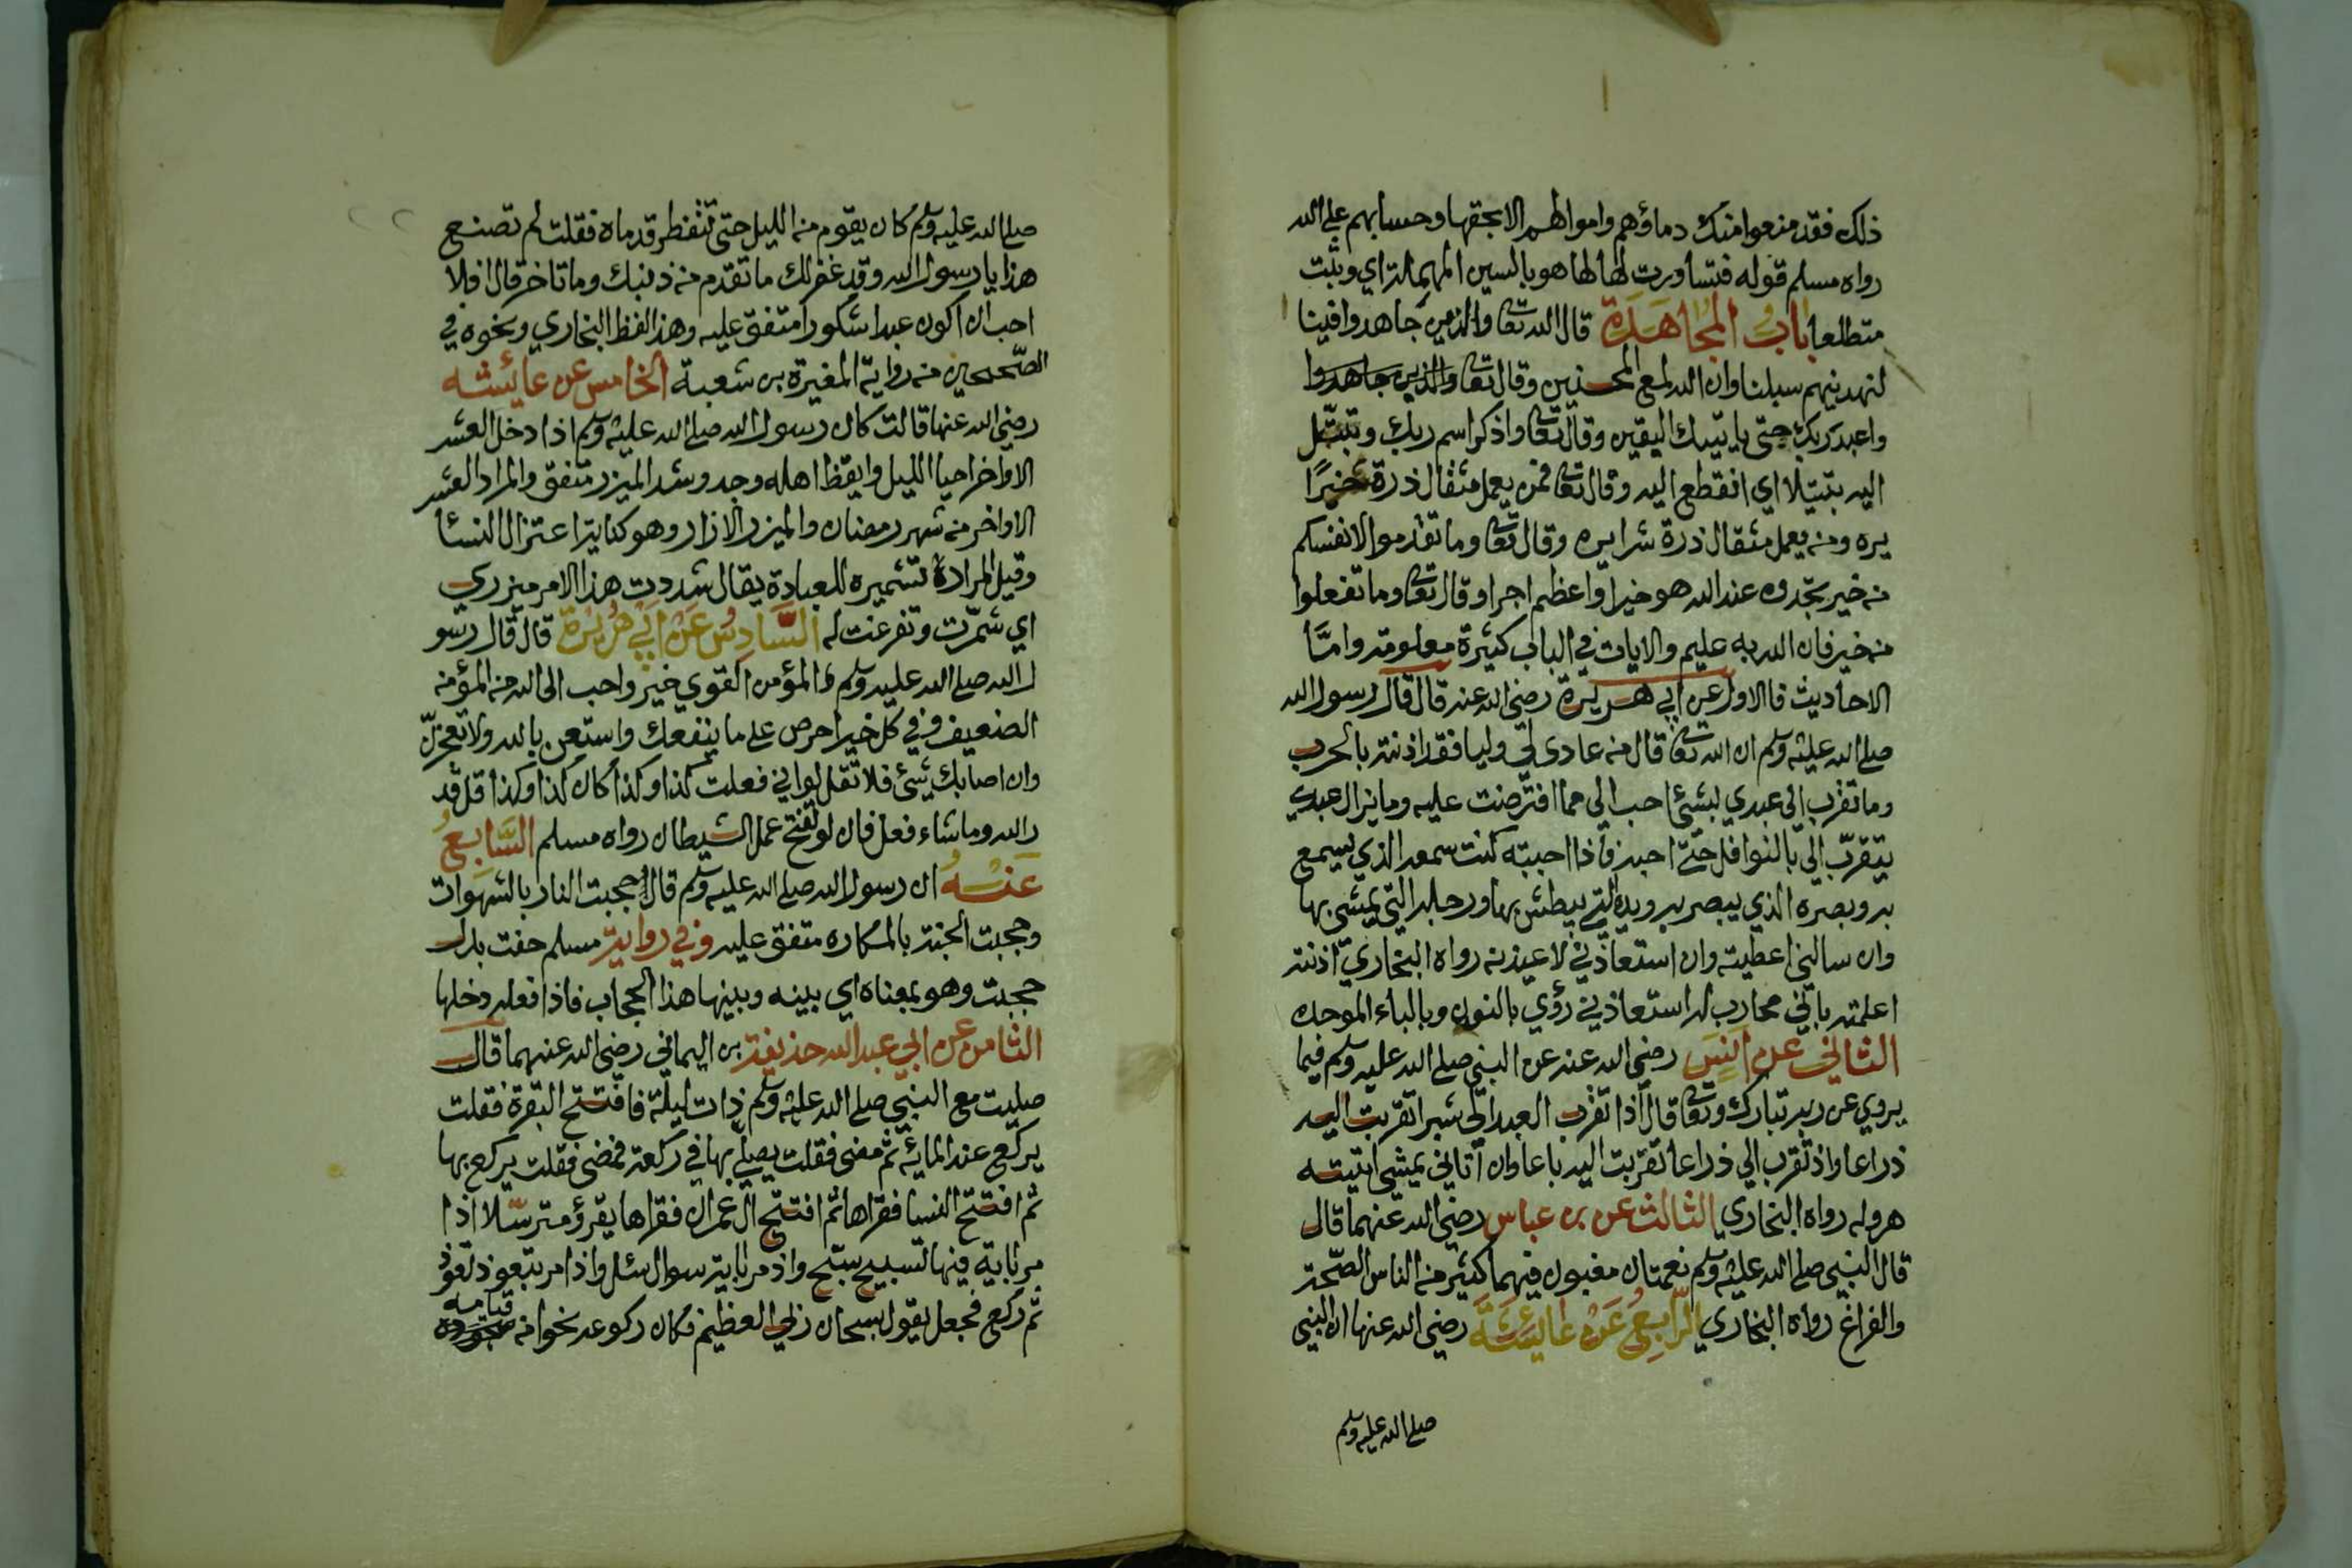 ذلك فقد منعوا منك دماؤهم واموالهم الا بحقها وحسابهم على الله
رواه مسلم قوله فتساورت لها لها هو بالسين المهملة اي وثبت
متطلعا باب المجاهدة قال الله تعا والذين جاهدوا فينا
لنهدينهم سبلنا وان الله لمع المحسنين وقال تعا والذين جاهدوا
واعبد ربك حتى ياتيك اليقين وقال تعا واذكر اسم ربك وتبتل
اليه بتتيلا اي انقطع اليه وقال تعا فمن يعمل مثقال ذرة خيرًا
يره ومن يعمل مثقال ذرة شرا يره وقال تعا وما تقدموا لانفسكم
من خير تجدوه عند الله هو خيرا واعظم اجرا وقال تعا وما تفعلوا
من خير فان الله به عليم والايات في الباب كثيرة معلومة وامَّا
الاحاديث فالاول عن ابي هريرة رضي الله عنه قال قال رسول الله
صلى الله عليه وسلم ان الله تعا قال من عادى لي وليا فقد اذنته بالحرب
وما تقرب الي عبدي بشئ احب الي مما افترضت عليه وما يزال عبدي
يتقرب الي بالنوافل حتى احبه فاذا احببته كنت سمعه الذي يسمع
به وبصره الذي يبصر به ويده التي يبطش بها ورجله التي يمشي بها
وان سالني اعطيته وان استعاذني لاعيذنه رواه البخاري اذنته
اعلمته باني محارب له استعاذني روي بالنون وبالباء الموحده
الثاني عن انس رضي الله عنه عن النبي صلى الله عليه وسلم فيما
يروي عن ربه تبارك وتعا قال اذا تقرب العبد الي شبرا تقربت اليه
ذراعا واذ تقرب الي ذراعا تقربت اليه باعا وان أتاني يمشي اتيته
هروله رواه البخاري الثالث عن بن عباس رضي الله عنهما قال
قال النبي صلى الله عليه وسلم نعمتان مغبون فيهما كثير من الناس الصحة
والفراغ رواه البخاري الرابع عن عايشة رضي الله عنها ان النبي
صلى الله عليه وسلم
صلى الله عليه وسلم كان يقوم من الليل حتى تتفطر قدماه فقلت لم تصنع
هذا يا رسول الله وقد غفر لك ما تقدم من ذنبك وما تاخر قال افلا
احب ان اكون عبدا شكورا متفق عليه وهذا لفظ البخاري ونحوه في
الصحيحين من رواية المغيرة بن شعبة الخامس عن عائشه
رضي الله عنها قالت كان رسول الله صلى الله عليه وسلم اذا دخل العشر
الاواخر احيا الليل وايقظ اهله وجد وشد الميزر متفق والمراد العشر
الاواخر من شهر رمضان والميزر الازار وهو كناية اعتزال النسا
وقيل المراد تشميره للعبادة يقال شددت هذا الامر ميزري
اي شمّرت وتفرغت له السَّادِسُ عَنْ ابي هُريْرَة قال قال رسو
ل الله صلى الله عليه وسلم المؤمن القوي خير واحب الى الله من المؤمن
الضعيف وفي كل خير احرص على ما ينفعك واستعن بالله ولا تعجزنّ
وان اصابك شئ فلا تقل لو اني فعلت كذا وكذا كان كذا وكذا قل قد
ر الله وما شاء فعل فان لو تفتح عمل الشيطان رواه مسلم السَّابعُ
عَنْهُ ان رسول الله صلى الله عليه وسلم قال حجبت النار بالشهوات
وحجبت الجنة بالمكاره متفق عليه وفي رواية مسلم حفت بدل
حجبت وهو بمعناه اي بينه وبينها هذا الحجاب فاذا فعله دخلها
الثامن عن ابي عبد الله حذيفة بن اليماني رضي الله عنهما قال
صليت مع النبي صلى الله عليه وسلم ذات ليلة فافتتح البقرة فقلت
يركع عند المائة ثم مضى فقلت يصلي بها في ركعة فمضى فقلت يركع بها
ثم افتتح النسا فقراها ثم افتتح ال عمران فقراها يقرؤ مترسّلا اذا
مر باية فيها تسبيح سبّح واذ مر باية سوال سئل واذا مر بتعوذ تعوذ
ثم ركع فجعل يقول سبحان ربي العظيم فكان ركوعه نحوا من قيامه